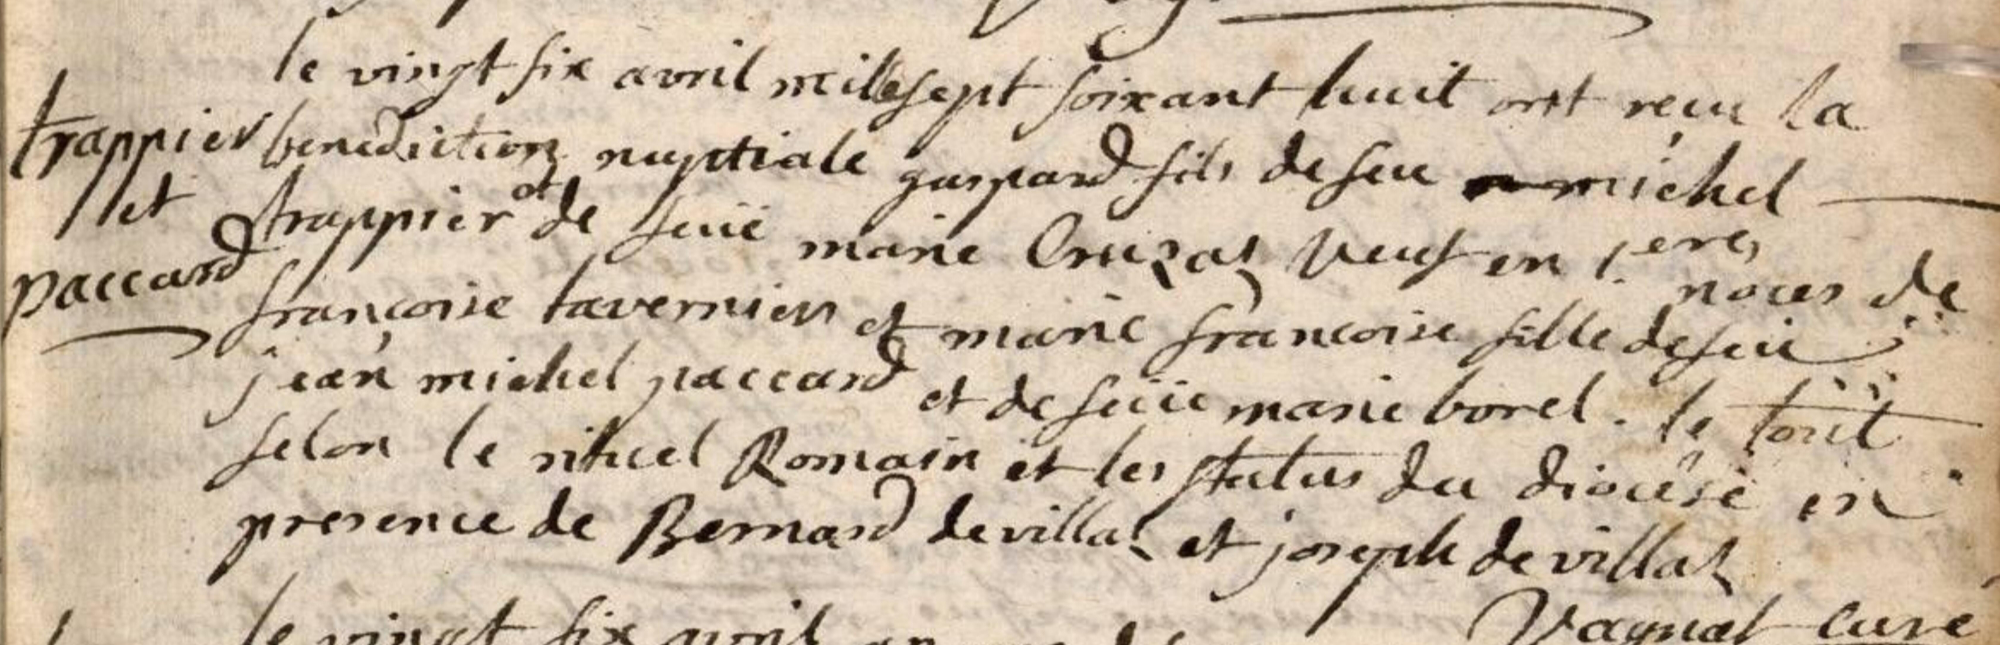 le vingt six avril mille sept soixant huit ont reçu la
trappier benediction nuptiale gaspard fils de feu michel
et trappier et de feuë marie Cruzaz veuf en 1.eres noces de
paccard françoise tavernier et marie françoise fille de feu
jean michel paccard et de feüe marie borel. le tout
selon le rituel Romain et les statuts du diocese en
presence de Bernard devillaz et joseph devillaz
le vingt six avril
Vagnat curé